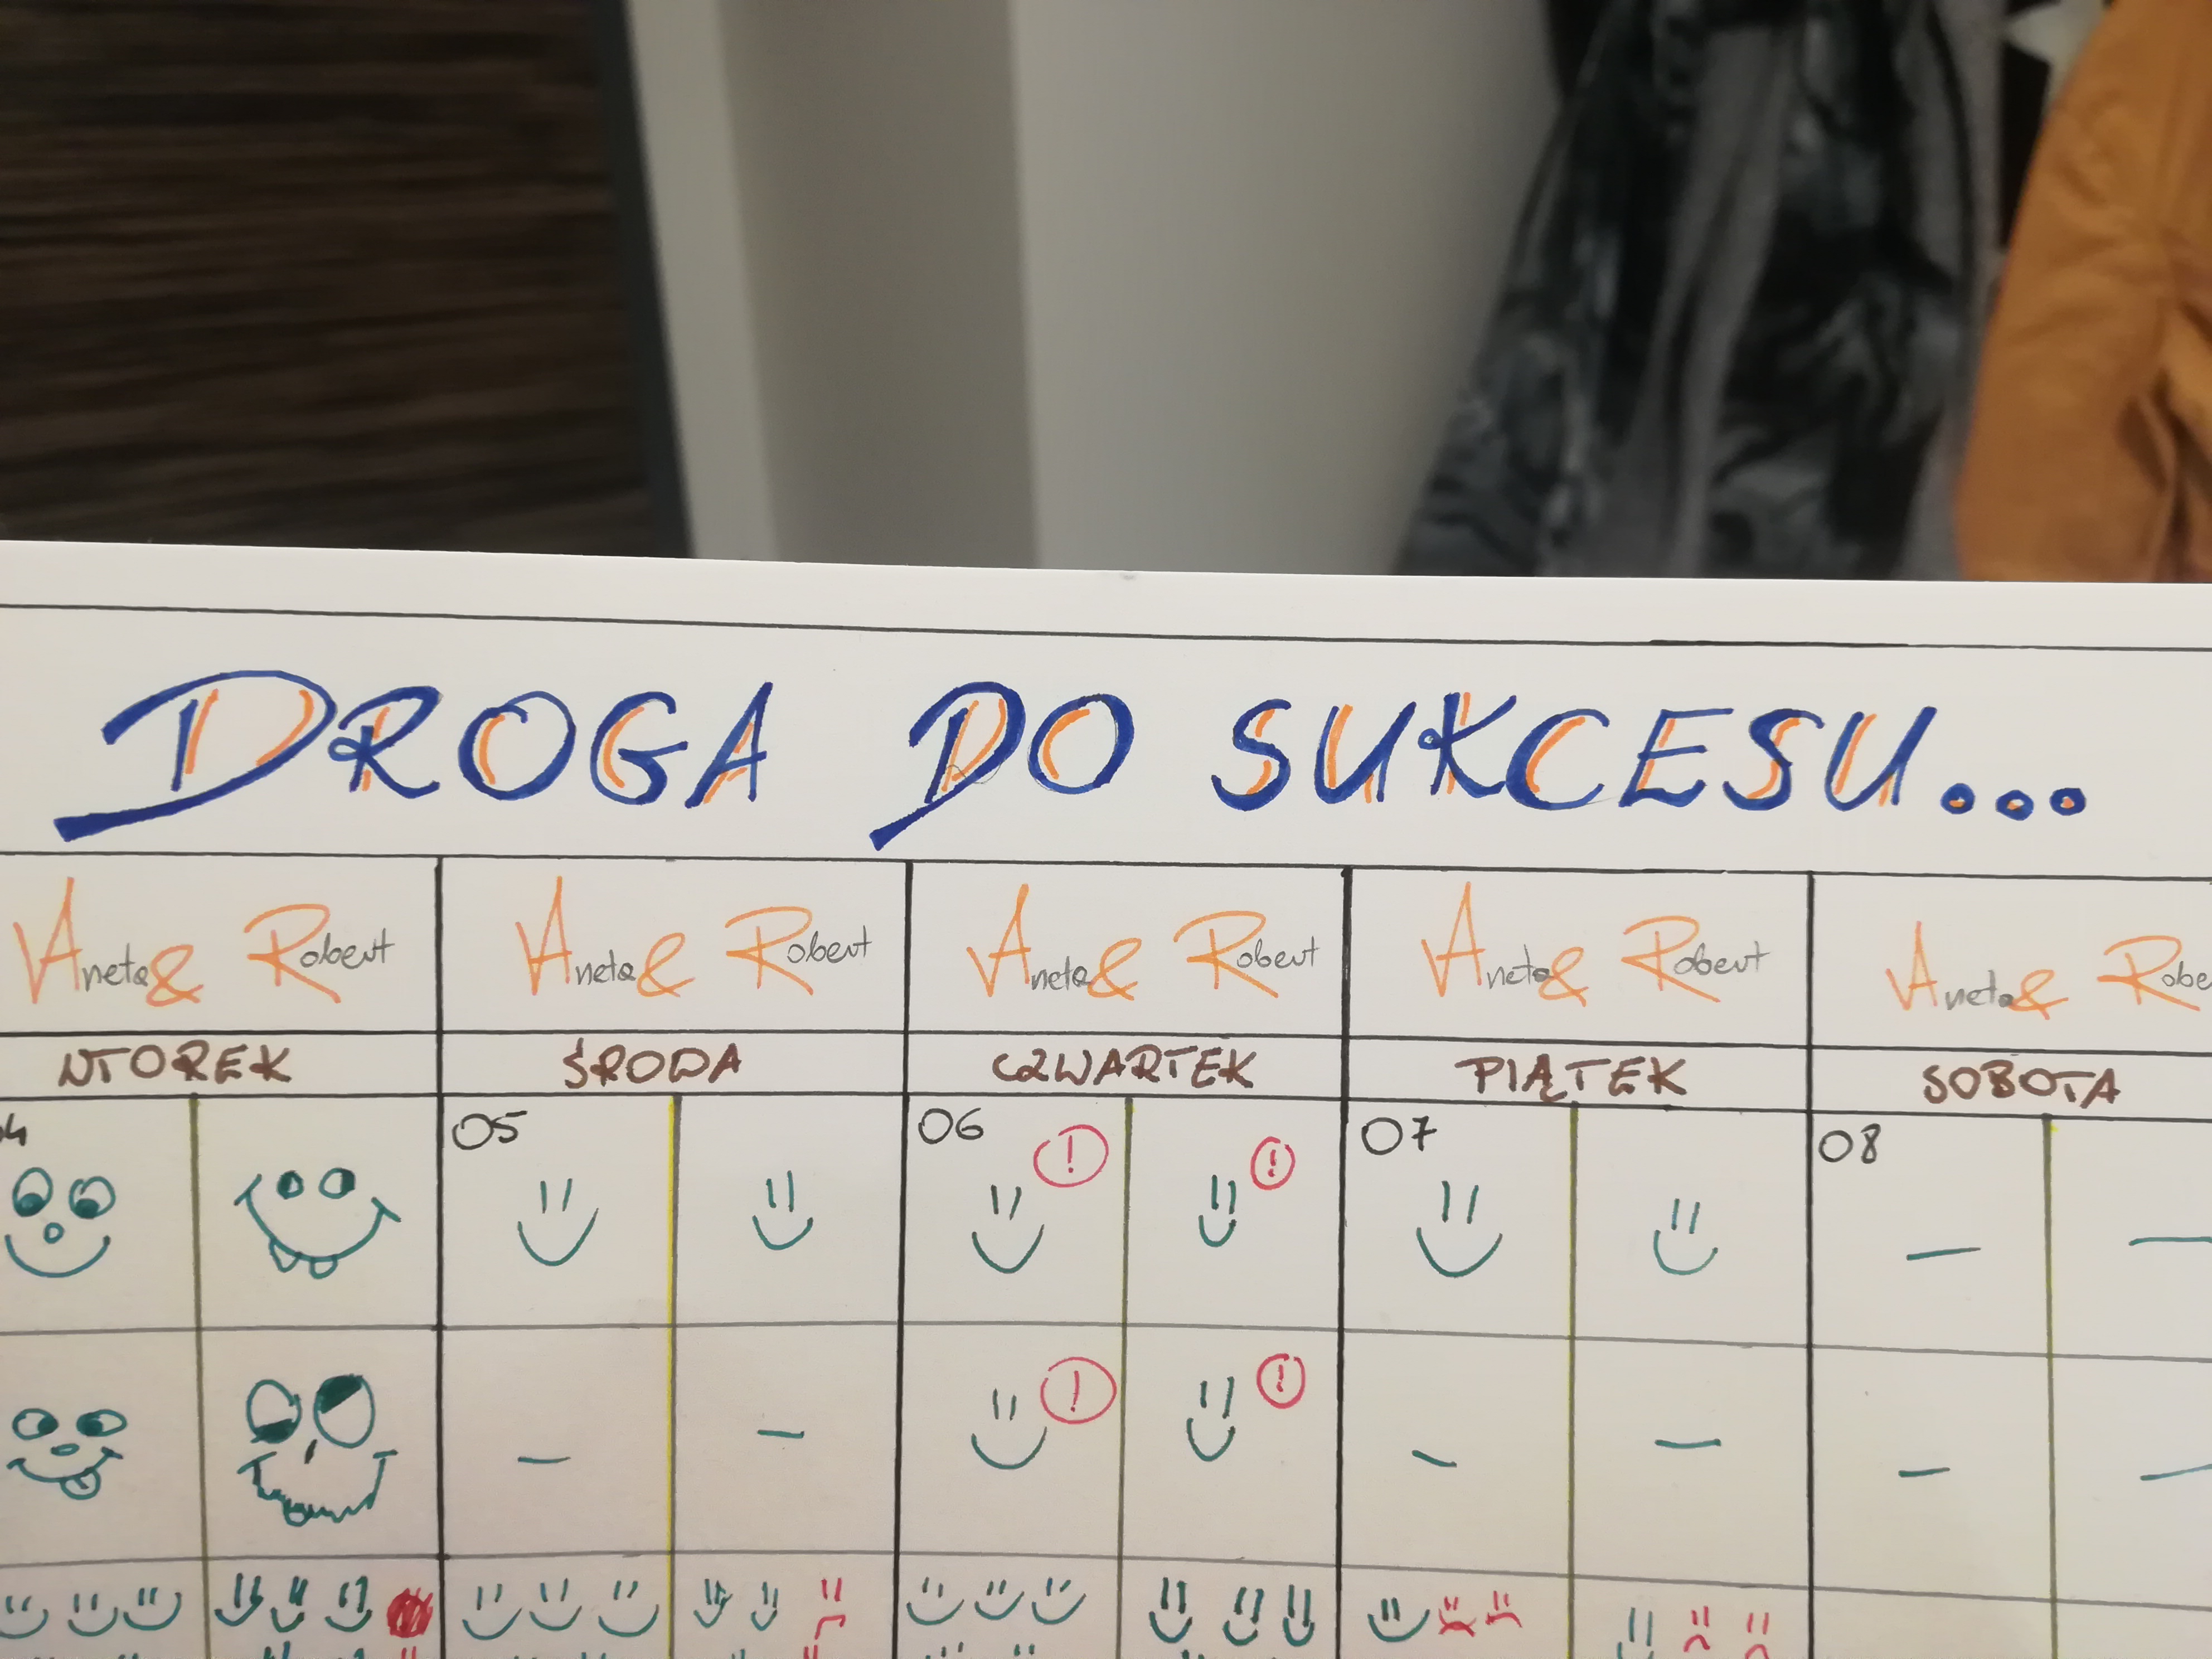 DROGA DO SUKCESU...
Aneta & Robert Aneta & Robert Aneta & Robert Aneta & Robert Aneta & Robe
WTOREK ŚRODA CZWARTEK PIĄTEK SOBOTA
04 05 06 ! ! 07 08
! !